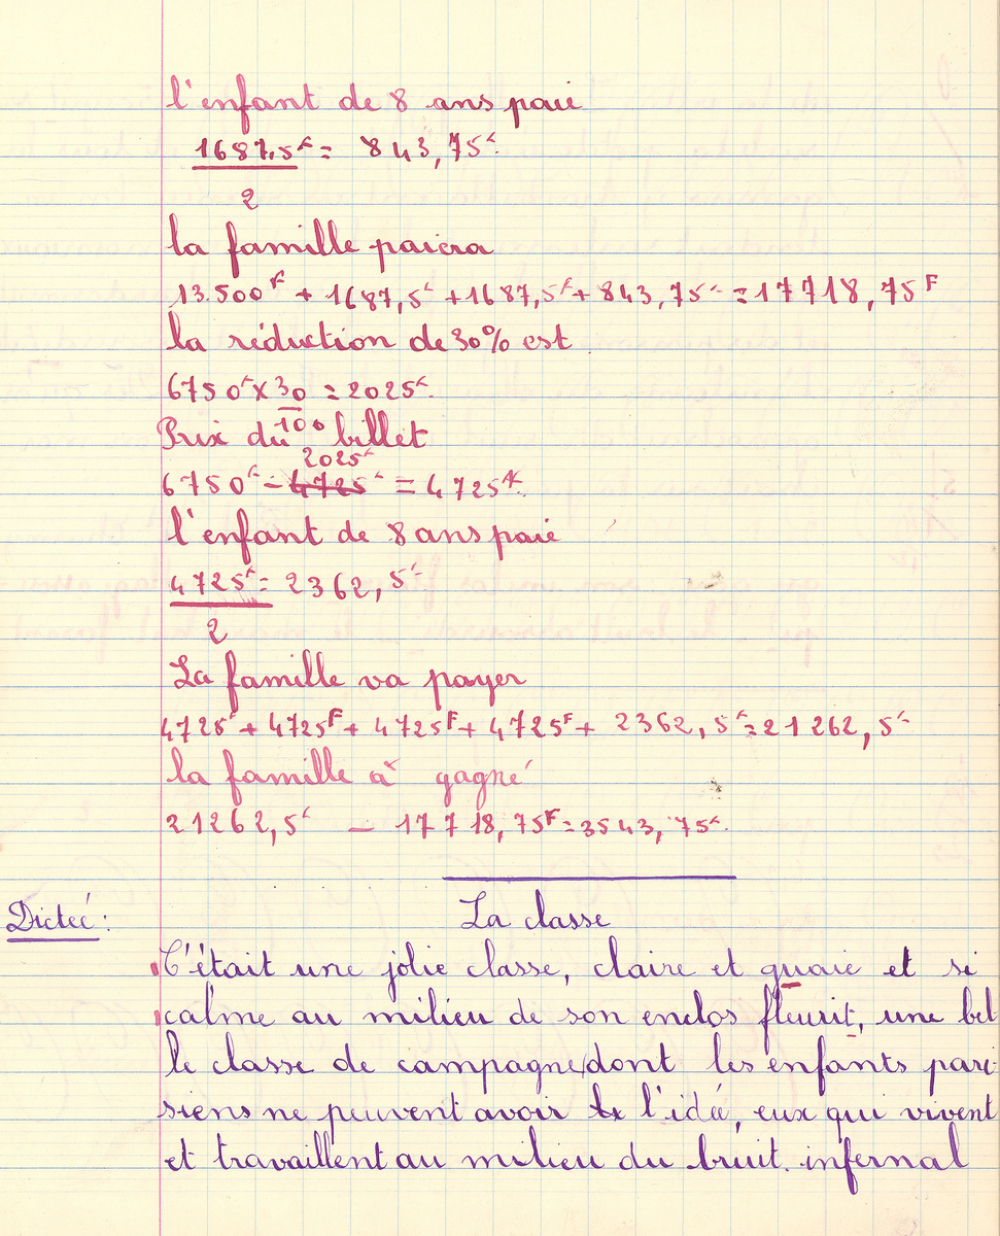 l'enfant de 8 ans paie
1687,5F = 843,75F
2
la famille paiera
13.500F + 1687,5F + 1687,5F + 843,75F = 17718,75F
la réduction de 30% est
6750F x 30 = 2025F.
100
Prix du billet
2025F
6750F - 4725F = 4725F.
l'enfant de 8 ans paie
4725F = 2362,5F
2
La famille va payer
4725F + 4725F + 4725F + 4725F + 2362,5F = 21262,5F
la famille à gagné
21262,5F - 17718,75F = 3543,75F.
Dictée : La classe
C'était une jolie classe, claire et guaie et si
calme au milieu de son enclos fleurit, une bel
le classe de campagne dont les enfants pari
siens ne peuvent avoir l'idée, eux qui vivent
et travaillent au milieu du bruit infernal